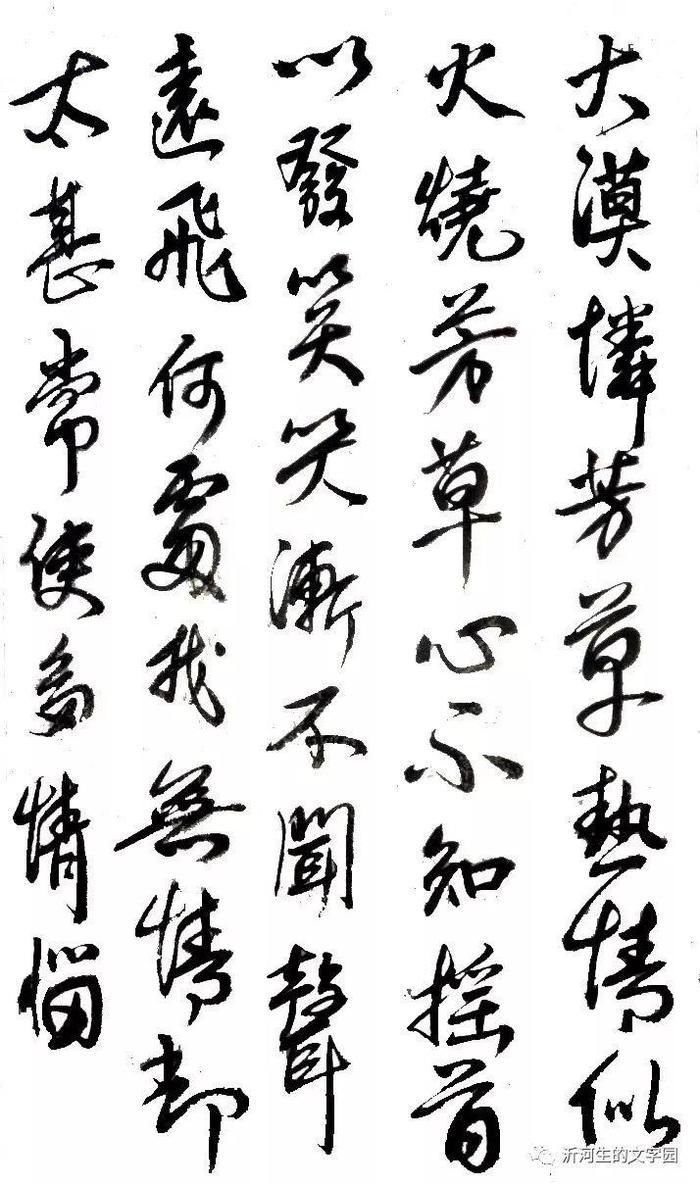 大漠憐芳草熱情似
火燒芳草心不知摇首
以發笑笑漸不聞聲
遠飛何處我無情却
太甚常使多情惱
沂河生的文字园